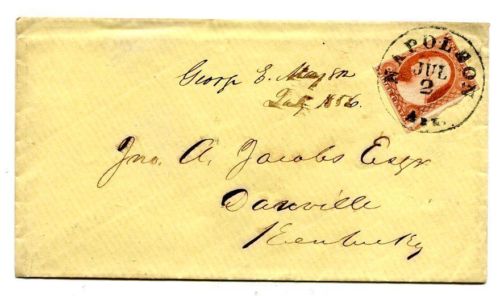 NAPOLEON
JUL
2
Ark.
George E.
July 1856.
Jno. A. Jacobs Esqr
Danville
Kentucky